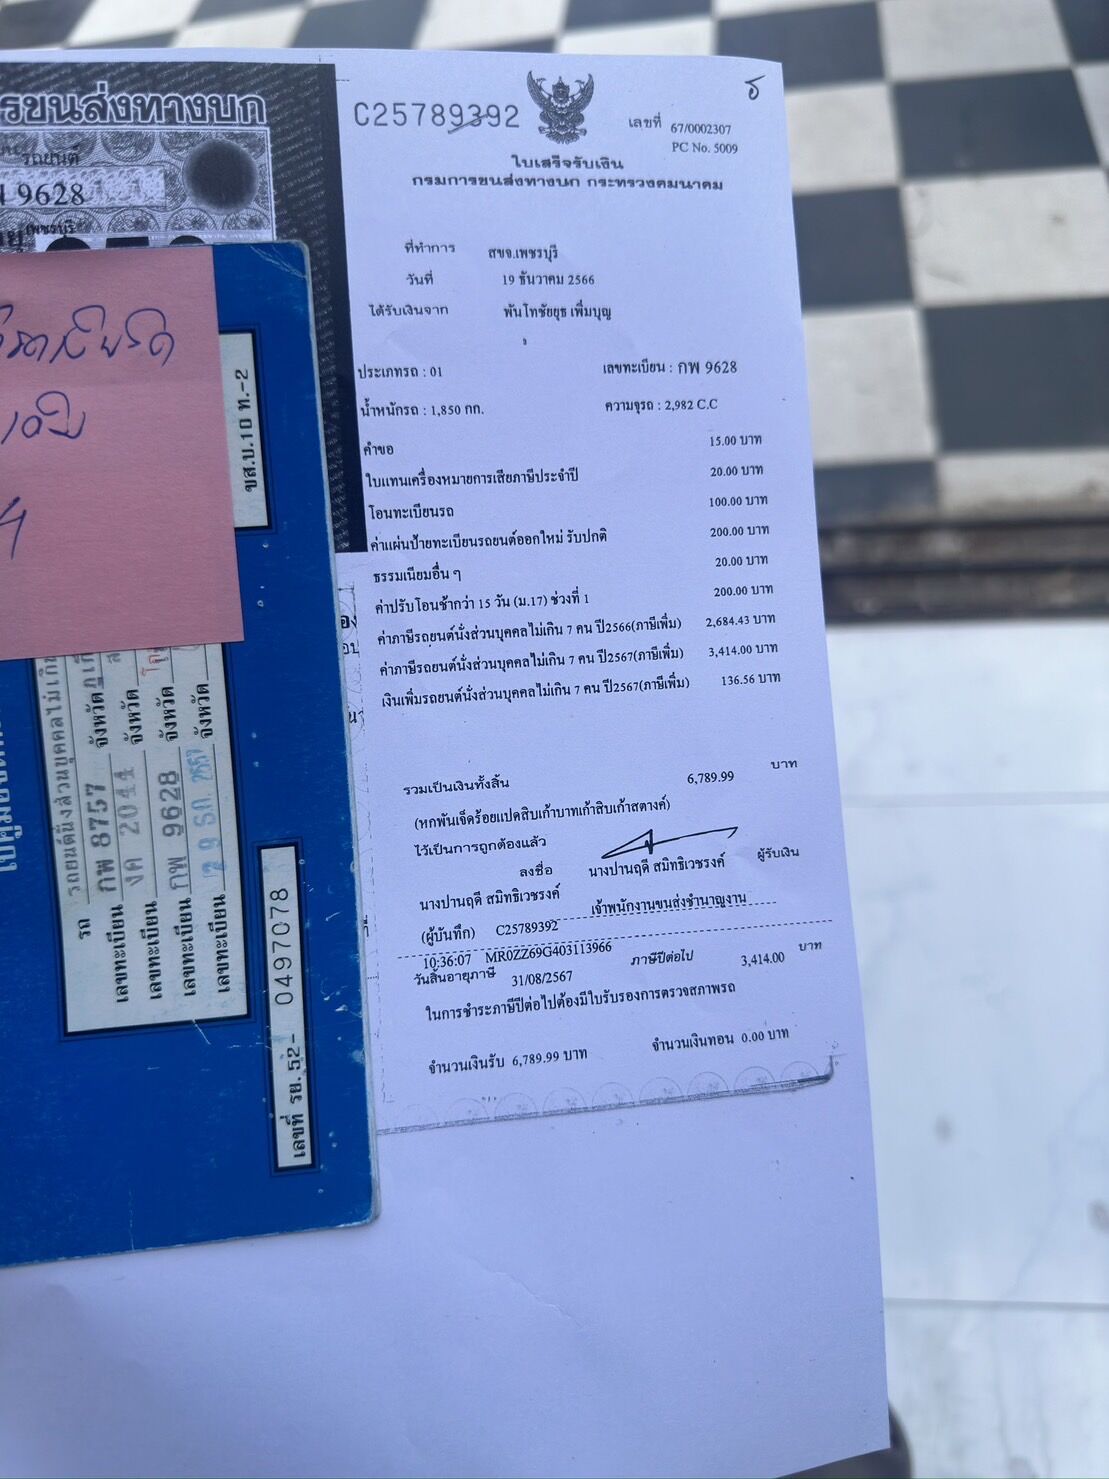 รขนส่งทางบก
รถยนต์
9628
เพชรบุรี
ขส.บ.10 ท.-2
รถ รถยนต์นั่งส่วนบุคคลไม่เกิน
เลขทะเบียน กพ 8757 จังหวัด
เลขทะเบียน งค 2044 จังหวัด
เลขทะเบียน กพ 9628 จังหวัด
เลขทะเบียน 29 ธ.ค. 2557 จังหวัด
เลขที่ รย.52- 0497078
C25789392
ธ
เลขที่ 67/0002307
PC No. 5009
ใบเสร็จรับเงิน
กรมการขนส่งทางบก กระทรวงคมนาคม
ที่ทำการ สขจ.เพชรบุรี
วันที่ 19 ธันวาคม 2566
ได้รับเงินจาก พันโทชัยยุธ เพิ่มบุญ
ประเภทรถ : 01 เลขทะเบียน : กพ 9628
น้ำหนักรถ : 1,850 กก. ความจุรถ : 2,982 C.C
คำขอ 15.00 บาท
ใบแทนเครื่องหมายการเสียภาษีประจำปี 20.00 บาท
โอนทะเบียนรถ 100.00 บาท
ค่าแผ่นป้ายทะเบียนรถยนต์ออกใหม่ รับปกติ 200.00 บาท
ธรรมเนียมอื่น ๆ 20.00 บาท
ค่าปรับโอนช้ากว่า 15 วัน (ม.17) ช่วงที่ 1 200.00 บาท
ค่าภาษีรถยนต์นั่งส่วนบุคคลไม่เกิน 7 คน ปี2566(ภาษีเพิ่ม) 2,684.43 บาท
ค่าภาษีรถยนต์นั่งส่วนบุคคลไม่เกิน 7 คน ปี2567(ภาษีเพิ่ม) 3,414.00 บาท
เงินเพิ่มรถยนต์นั่งส่วนบุคคลไม่เกิน 7 คน ปี2567(ภาษีเพิ่ม) 136.56 บาท
รวมเป็นเงินทั้งสิ้น 6,789.99 บาท
(หกพันเจ็ดร้อยแปดสิบเก้าบาทเก้าสิบเก้าสตางค์)
ไว้เป็นการถูกต้องแล้ว
ลงชื่อ นางปานฤดี สมิทธิเวชรงค์ ผู้รับเงิน
นางปานฤดี สมิทธิเวชรงค์ เจ้าพนักงานขนส่งชำนาญงาน
(ผู้บันทึก) C25789392
10:36:07 MR0ZZ69G403113966
วันสิ้นอายุภาษี 31/08/2567 ภาษีปีต่อไป 3,414.00 บาท
ในการชำระภาษีปีต่อไปต้องมีใบรับรองการตรวจสภาพรถ
จำนวนเงินรับ 6,789.99 บาท จำนวนเงินทอน 0.00 บาท